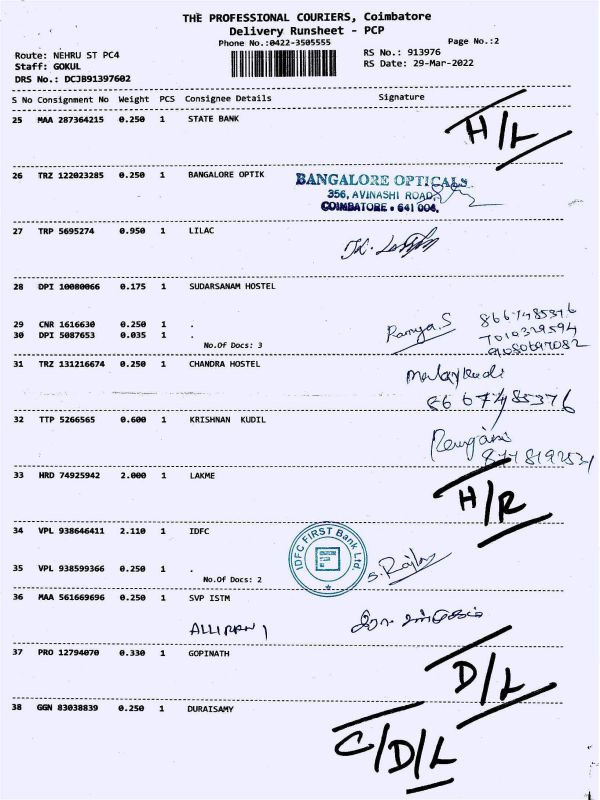 THE PROFESSIONAL COURIERS, Coimbatore
Delivery Runsheet - PCP
Phone No.:0422-3505555
Page No.:2
Route: NEHRU ST PC4
RS No.: 913976
Staff: GOKUL
RS Date: 29-Mar-2022
DRS No.: DCJB91397602
S No Consignment No Weight PCS Consignee Details Signature
25 MAA 287364215 0.250 1 STATE BANK
H/L
26 TRZ 122023285 0.250 1 BANGALORE OPTIK
BANGALORE OPTICALS
356, AVINASHI ROAD,
COIMBATORE - 641 004.
27 TRP 5695274 0.950 1 LILAC
28 DPI 10080066 0.175 1 SUDARSANAM HOSTEL
29 CNR 1616630 0.250 1 .
30 DPI 5087653 0.035 1 .
No.Of Docs: 3
Ramya.S
8667485376
7010329594
9080697082
31 TRZ 131216674 0.250 1 CHANDRA HOSTEL
8667485376
32 TTP 5266565 0.600 1 KRISHNAN KUDIL
33 HRD 74925942 2.000 1 LAKME
H/R
34 VPL 938646411 2.110 1 IDFC
IDFC FIRST Bank Ltd.
35 VPL 938599366 0.250 1 .
No.Of Docs: 2
36 MAA 561669696 0.250 1 SVP ISTM
37 PRO 12794070 0.330 1 GOPINATH
D/L
38 GGN 83038839 0.250 1 DURAISAMY
C/D/L